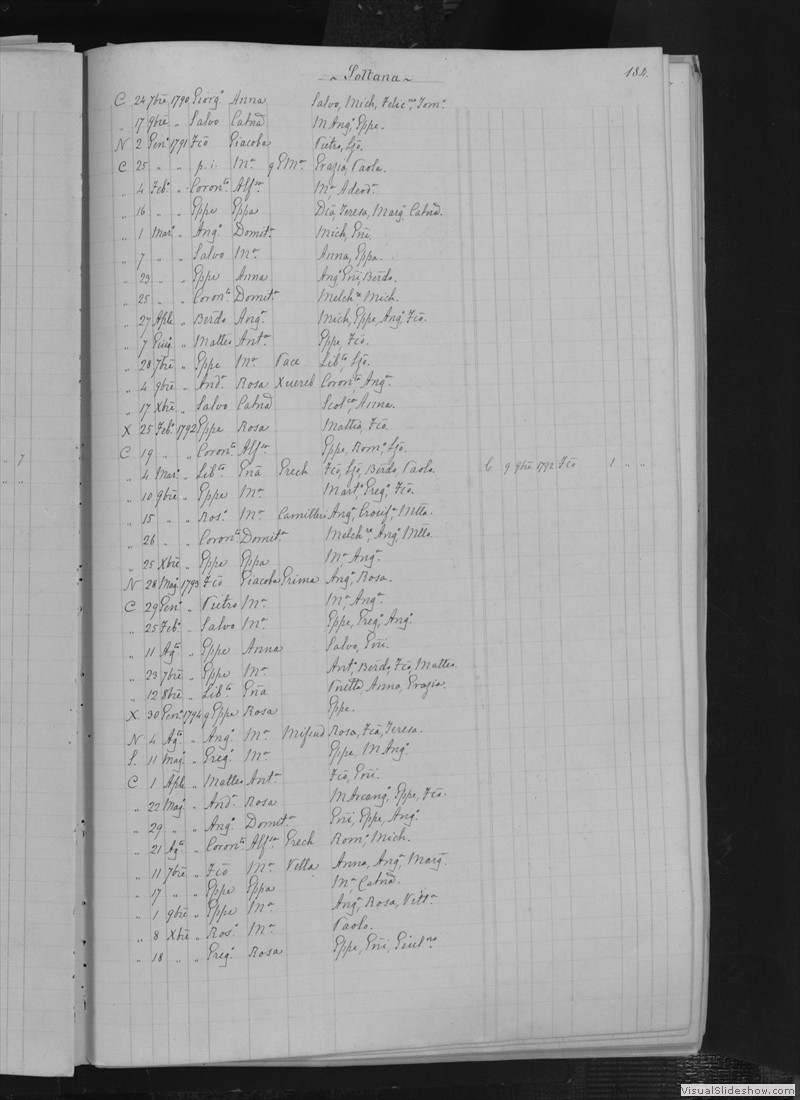 ~ Sottana ~
184.
C 24 7bre 1790 Giorgo Anna Salvo, Mich, Felicna, Toma.
" 17 9bre " Salvo Catna M Anga, Eppe.
N 2 Geno 1791 Fco Giacoba Pietro, Ljo.
C 25 " " p. i. Ma q E Ma Grazia, Paola.
" 4 Febo " Coronto Alfsa Ma Adeoda.
" 16 " " Eppe Eppa Dca, Teresa, Marga, Catna.
" 1 Maro " Ango Domita Mich, Eni.
" 7 " " Salvo Ma Anna, Eppa.
" 23 " " Eppe Anna Ango Eni, Berdo.
" 25 " " Corono Domita Melchre Mich.
" 27 Aple " Berdo Anga Mich, Eppe, Ango, Fco.
" 7 Giug " Matteo Anta Eppe, Fco.
" 28 7bre " Eppe Ma Pace Libta, Ljo.
" 4 9bre " Anda Rosa Xuereb Coronta, Anga.
" 17 Xbre " Salvo Catna Scolca, Anna.
X 25 Febo 1792 Eppe Rosa Mattia, Fco.
C 19 " " Coronto Alfsa Eppe, Roma, Ljo.
" 4 Maro " Libto Gna Grech Fco, Ljo, Berdo, Paola. C 9 9bre 1792 Fco 1 " "
" 10 9bre " Eppe Ma Marta, Grega, Fco.
" 15 " " Roso Ma Camilleri Ango, Crocifa Mtta.
" 26 " " Coronto Domita Melchre, Ango, Mtta.
" 25 Xbre " Eppe Eppa Ma, Anga.
N 28 Mago 1793 Fco Giacoba Grima Ango, Rosa.
C 29 Geno " Pietro Ma Ma, Anga.
" 25 Febo " Salvo Ma Eppe, Grego, Ango.
" 11 Agto " Eppe Anna Salvo, Eni.
" 23 7bre " Eppe Ma Anto Berdo, Fco, Matteo.
" 12 8bre " Libto Gna Anna, Grazia.
X 30 Geno 1794 q Eppe Rosa Eppe.
N 4 Agto " Ango Ma Mifsud Rosa, Fca, Teresa.
S. 11 Mago " Grego Ma Eppe, M Anga.
C 1 Aple " Matteo Anta Fco, Eni.
" 22 Mago " Anda Rosa M Arcanga, Eppe, Fco.
" 29 " " Ango Domita Eni, Eppe, Ango.
" 21 Agto " Coronto Alfsa Grech Roma, Mich.
" 11 7bre " Fco Ma Vella Anna, Anga, Marga.
" 17 " " Eppe Eppa Ma, Catna.
" 1 9bre " Eppe Ma Anga, Rosa, Vitta.
" 8 Xbre " Roso Ma Paolo.
" 18 " " Grego Rosa Eppe, Eni, Giulno
" 7
" "
VisualSlideshow.com